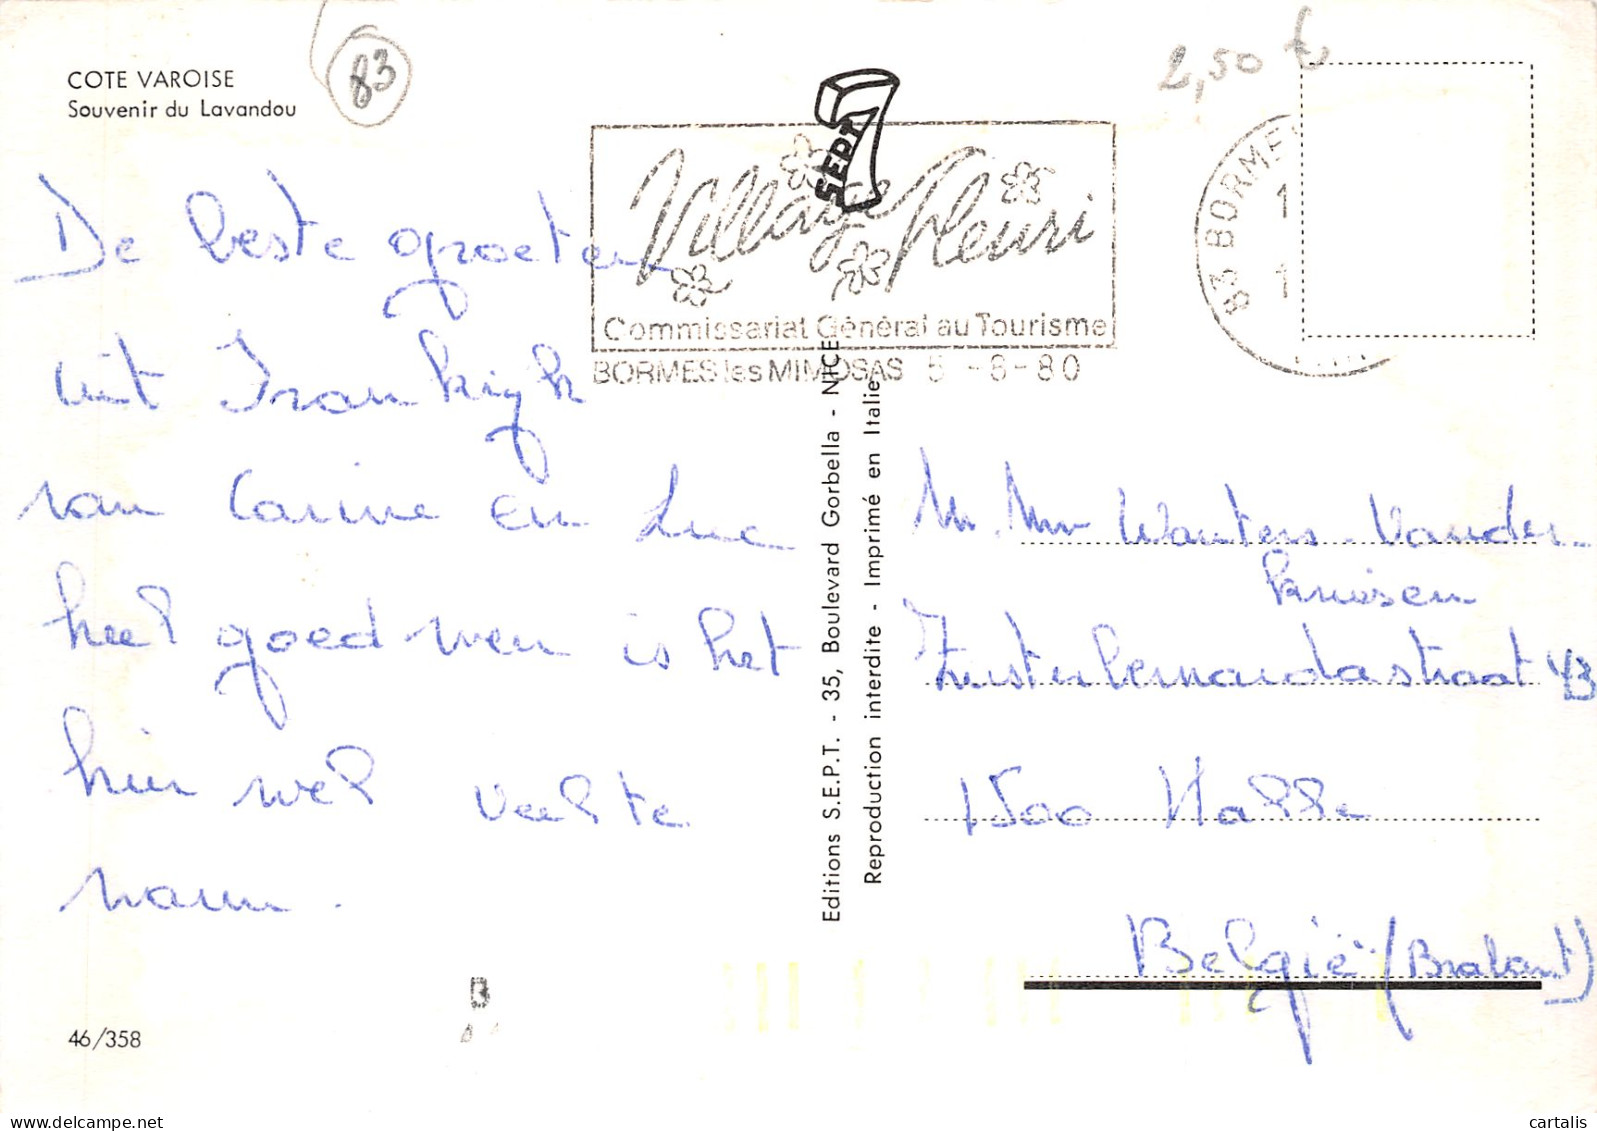 COTE VAROISE
Souvenir du Lavandou
83
2,50 €
SEPT
Village Fleuri
Commissariat Général au Tourisme
BORMES les MIMOSAS 5 -8-80
83 BORME
De beste groeten
uit Frankrijk
van Carine en Luc
heel goed weer is het
hier wel veel te
warm.
Editions S.E.P.T. - 35, Boulevard Gorbella - NICE
Reproduction interdite - Imprimé en Italie
M. Mw Wauters - Vander-
kruissen
Zusterbernardastraat 43
1500 Halle
België (Brabant)
46/358
B
cartalis